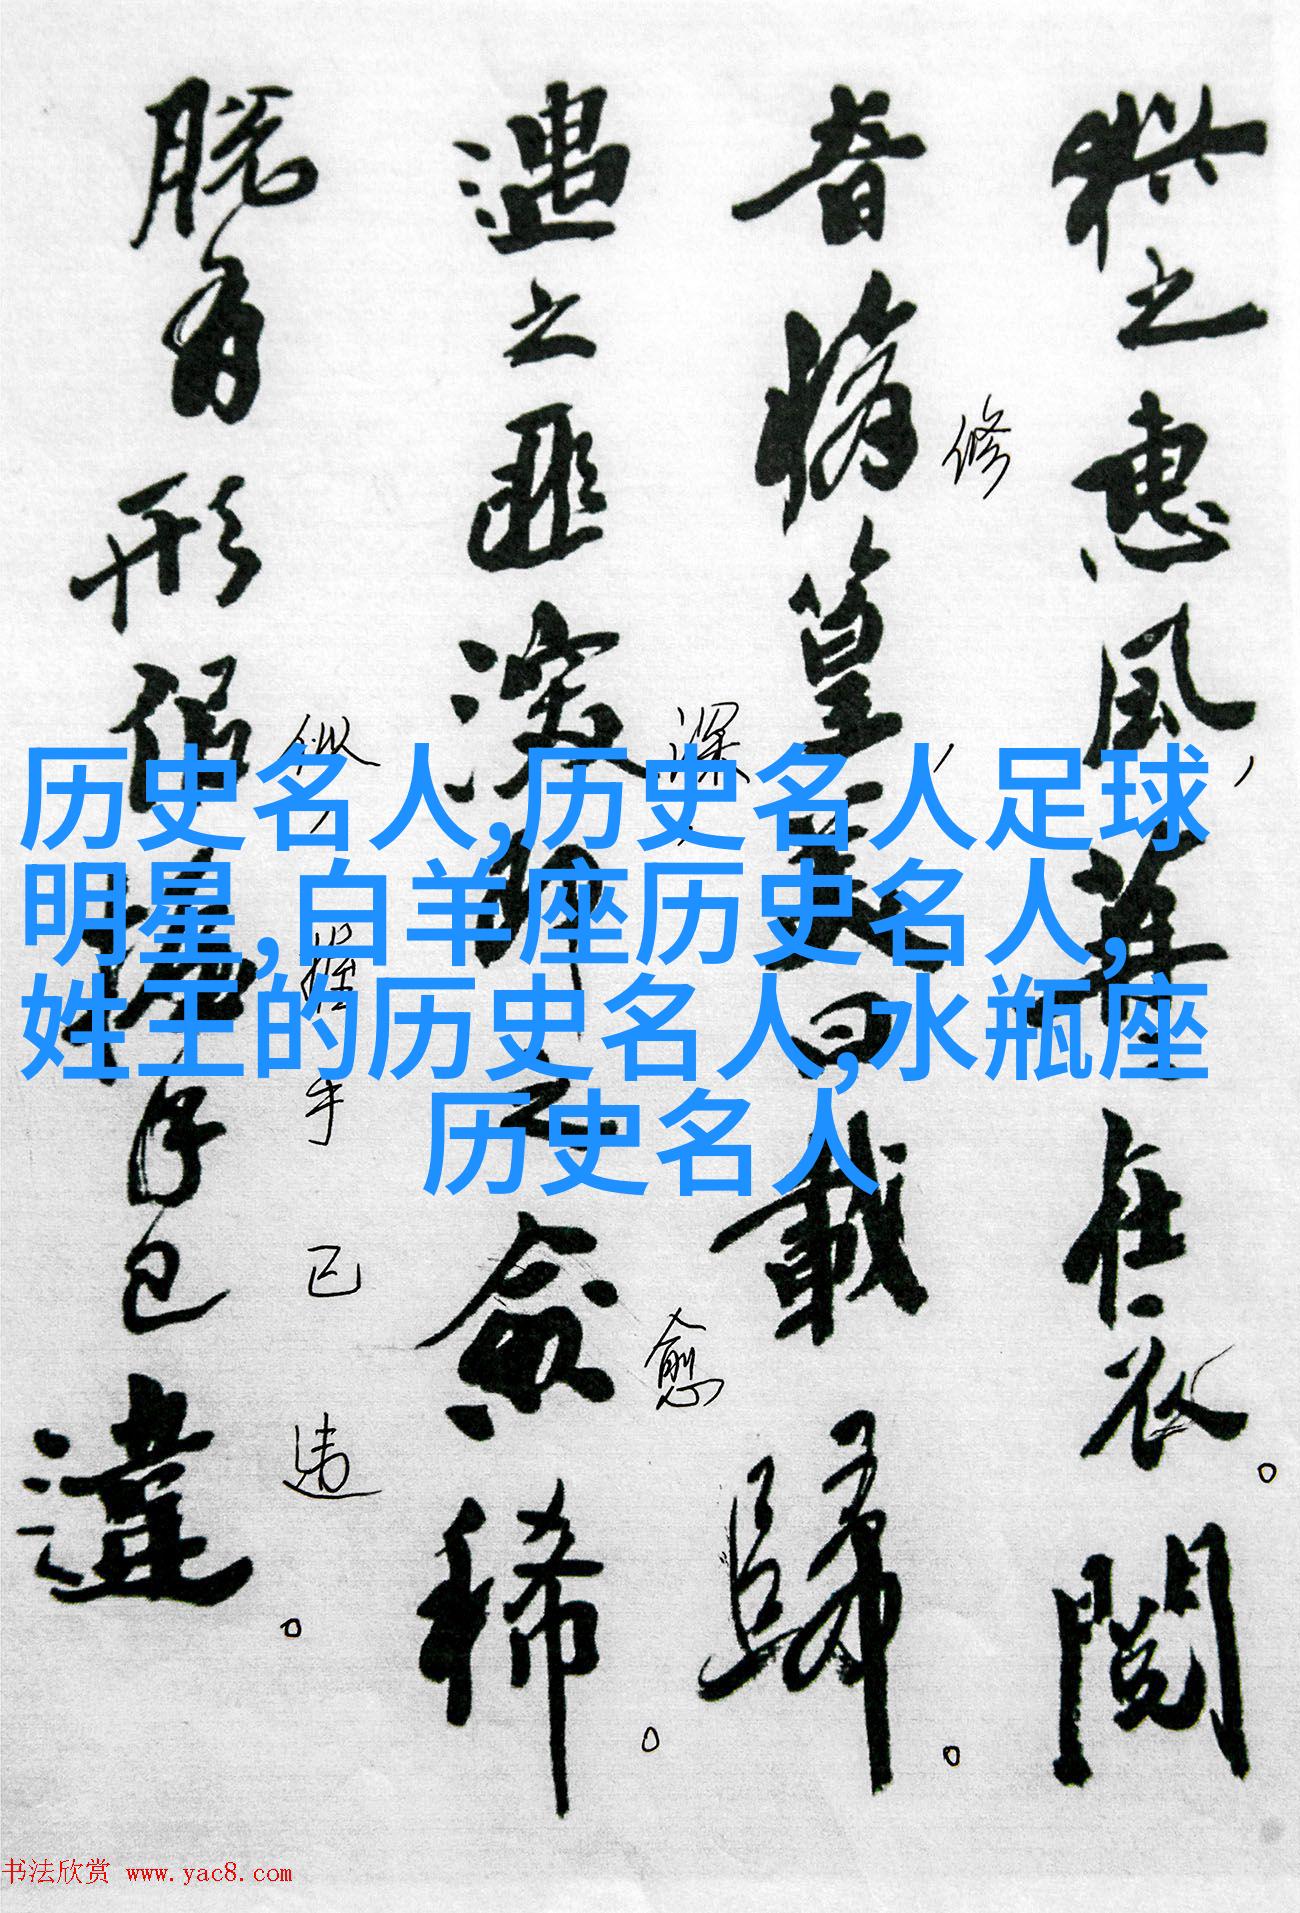 历史名人,历史名人足球
明星,白羊座历史名人,
姓王的历史名人,水瓶座
历史名人
之惠風，苒在衣。閲
音脩篁，美曰載歸。
修
遇之匪深即之愈稀。
深
愈
脱有形侣握手已違。
似，握手已违
书法欣赏 www.yac8.com